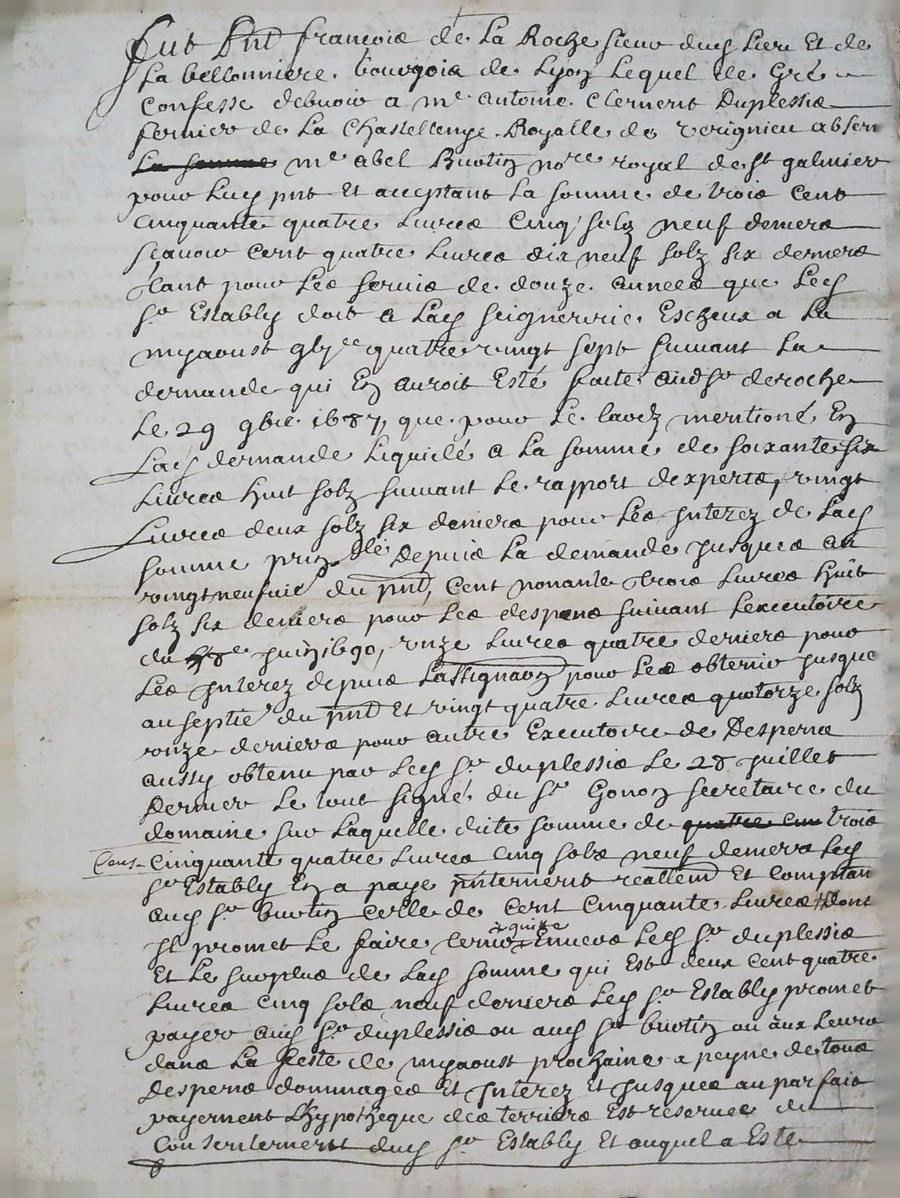 Fut pnt françois de La Roche sieur dud Lieu Et de
La bellonniere. bourgois de Lyon Lequel de Gré
Confesse debuoir a me Antoine Clement Duplessis
fermier de La Chastellenye Royalle de verignieu absent
La somme me abel Buotin nore royal de st galmier
pour Luy pnt Et acceptant La somme de trois cent
Cinquante quatre Livres Cinq solz neuf deniers
scauoir Cent quatre Livres dix neuf solz six deniers
tant pour Les servis de douze années que Led
sr Estably doit a Lad seigneurie Escheux a La
myaoust quatre vingt sept suiuant La
demande qui En auroit Esté faite aud sr deroche
Le 29 9bre 1687, que pour Le laodz mentioné En
Lad demande Liquidé a La somme de soixante six
Livres huit solz suiuant Le rapport dexperts, vingt
Livres deux solz six deniers pour Les Interez de Lad
somme depuis La demande Jusques au
vingtneufuie du pnt, Cent nonante trois Livres huit
solz six deniers pour Les despens suiuant Lexecutoire
du Juin 1690, onze Livres quatre deniers pour
Les Interez depuis Lassignaon pour Les obtenir Jusque
au septie du pnt Et vingt quatre Livres quatorze solz
onze deniers pour autre Executoire de Despens
aussy obtenu par Led sr duplessis Le 28 Juillet
Dernier Le tout signé du sr Gonon secretaire du
domaine sur Laquelle dite somme de quatre cen trois
Cens Cinquante quatre Livres Cinq sols neuf deniers Led
sr Estably En a paye pntement reallemt Et Comptan
aud sr buotin Celle de Cent Cinquante Livres Dont
Il promet Le faire tenir quitte Enuers Led sr duplessis
Et Le surplus de Lad somme qui Est deux Cent quatre
Livres Cinq sols neuf deniers Led sr Estably promet
payer aud sr duplessis ou aud sr buotin ou aux Leurs
dans La feste de myaoust prochaine a peyne de tous
Despens dommages Et Interez Et Jusques au parfait
payement Lhypotheque des terriers Est reservée du
Consentement dud sr Estably Et auquel a Esté